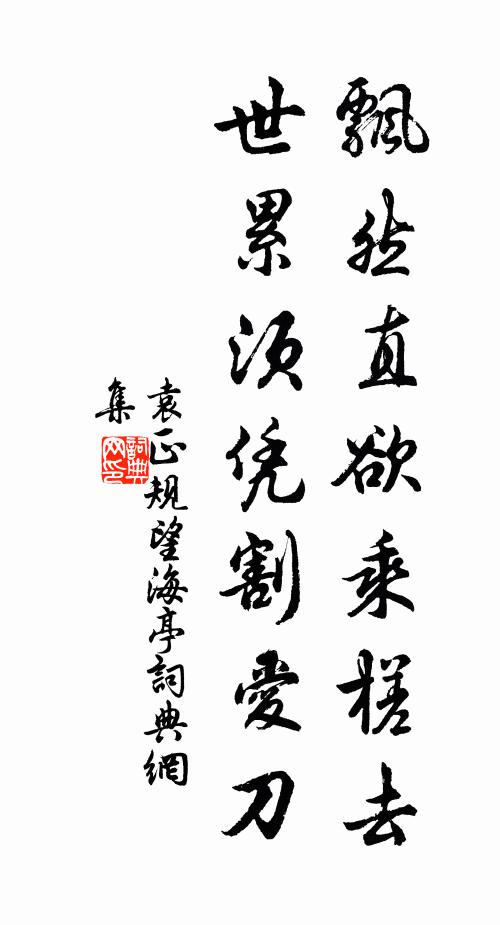 飄然直欲乘槎去
世累須凭割愛刀
袁正規望海亭詞典網
集
詞典網印